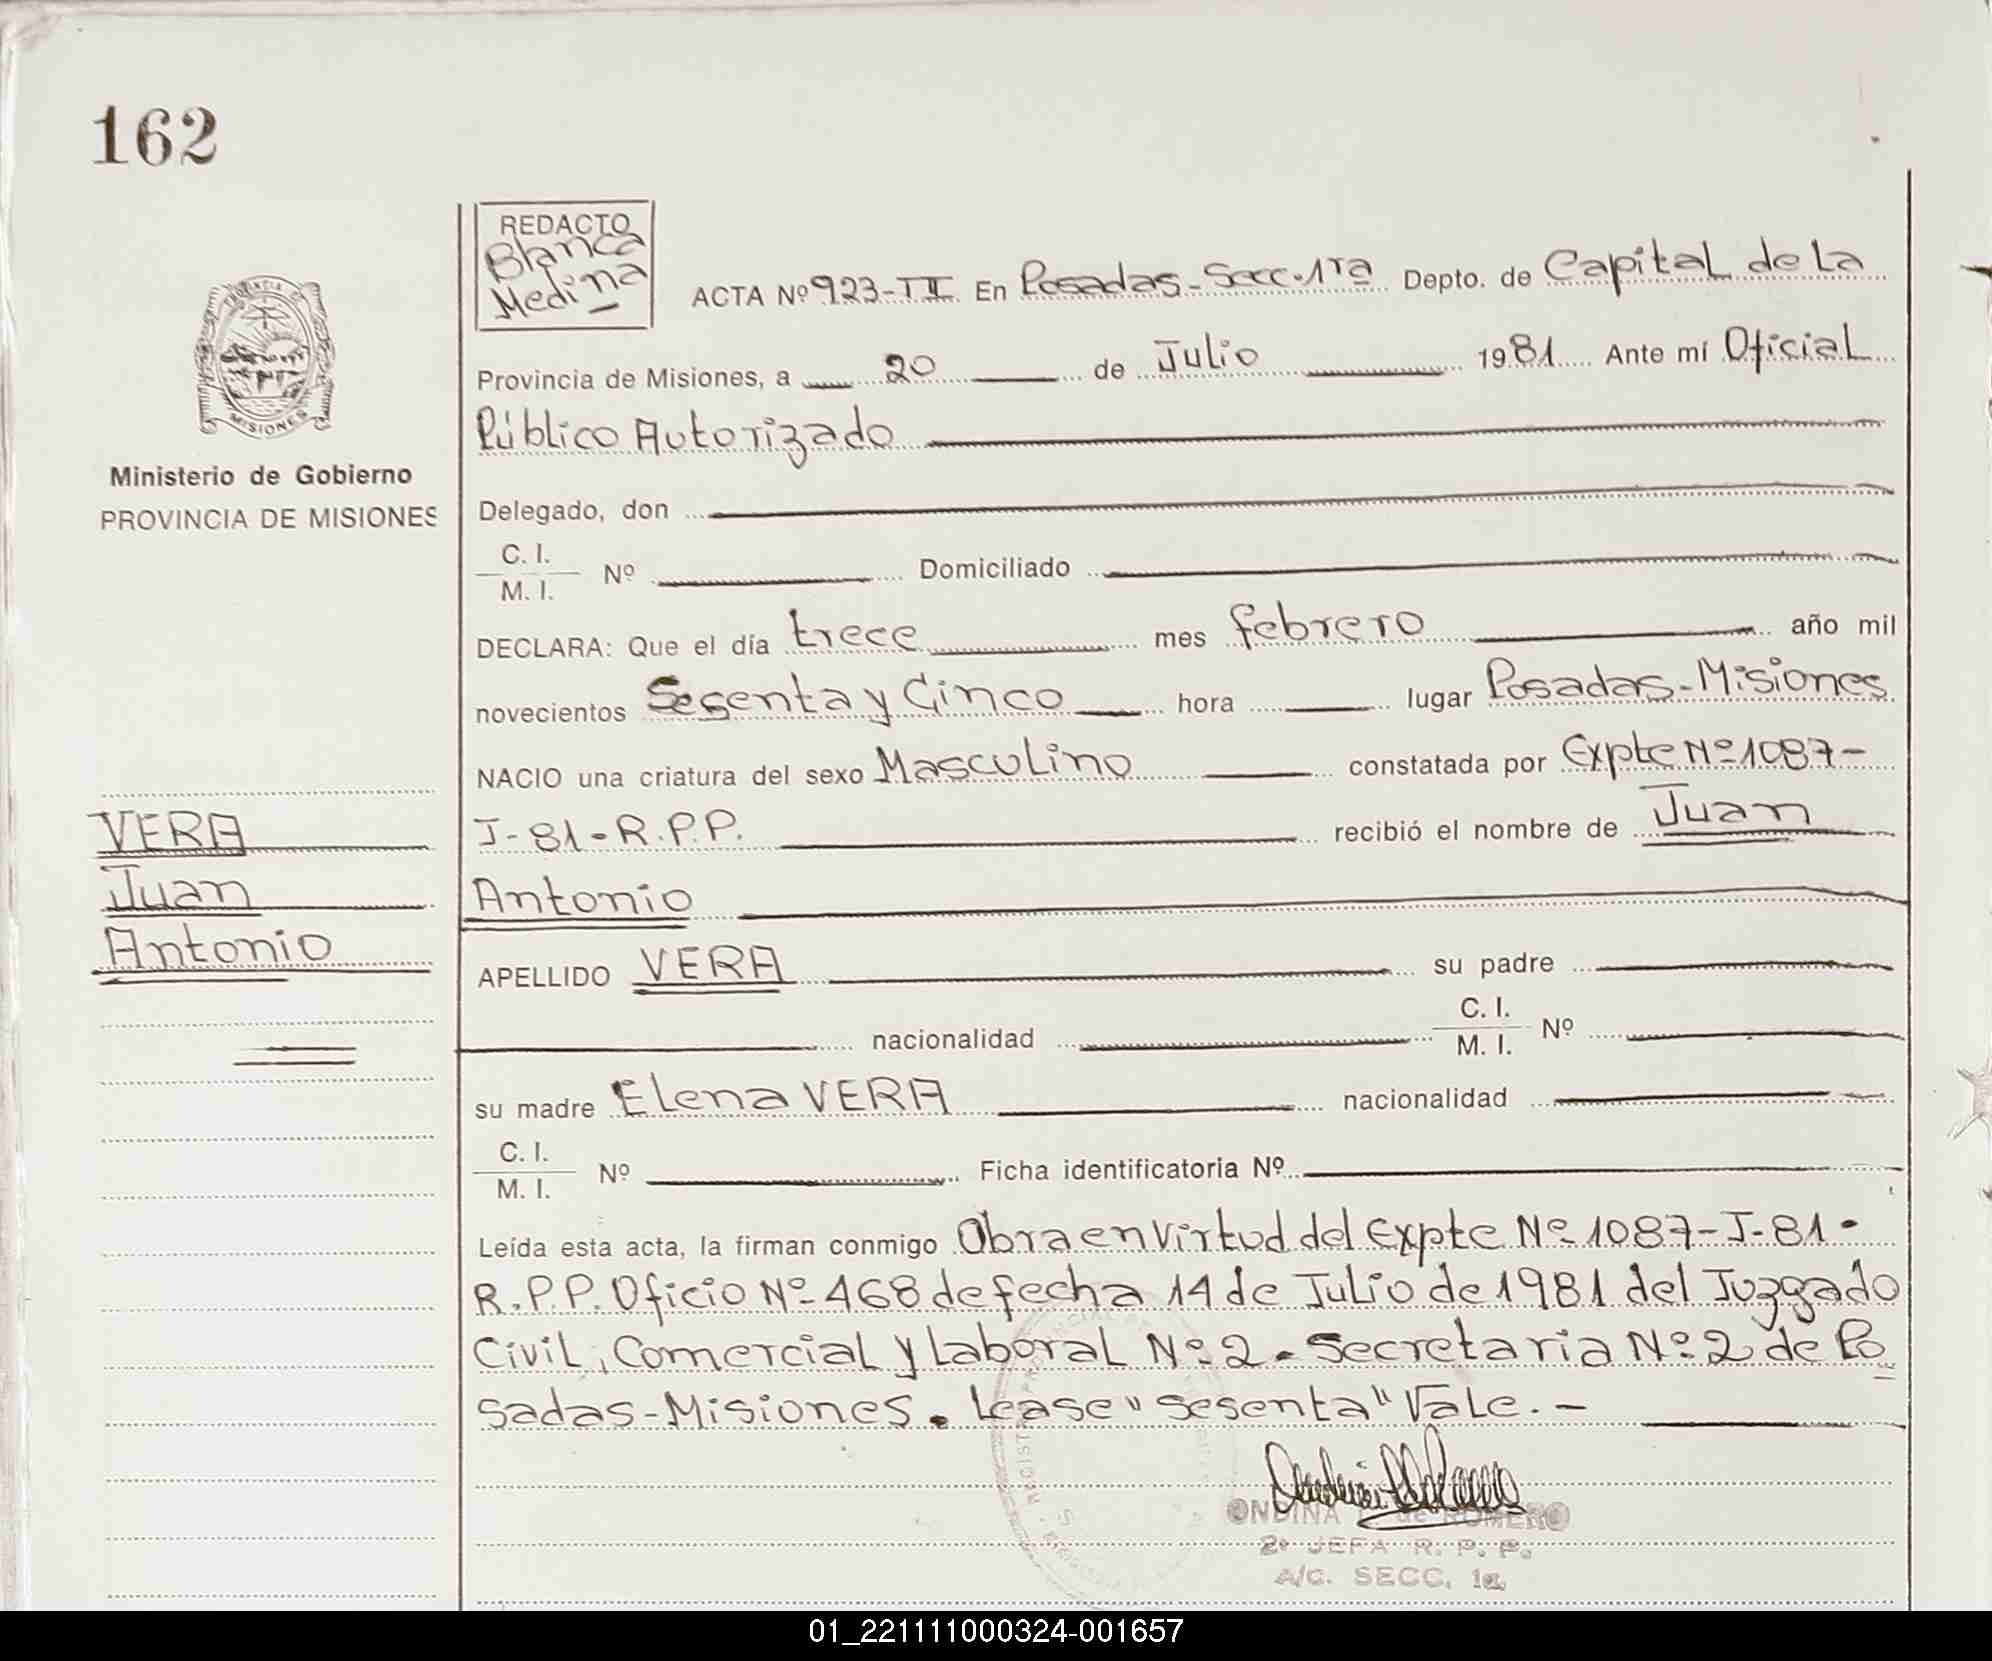 162
REDACTO
Blanca
Medina
ACTA Nº 923-II En Posadas-Secc.1ra Depto. de Capital de La
Provincia de Misiones, a 20 de Julio 1981 Ante mí Oficial
Público Autorizado
PROVINCIA DE
MISIONES
Ministerio de Gobierno
PROVINCIA DE MISIONES
Delegado, don
C. I.
M. I.
Nº Domiciliado
DECLARA: Que el día trece mes febrero año mil
novecientos Sesenta y Cinco hora lugar Posadas-Misiones
NACIO una criatura del sexo Masculino constatada por Expte Nº 1087-
J-81-R.P.P. recibió el nombre de Juan
Antonio
VERA
Juan
Antonio
APELLIDO VERA su padre
nacionalidad C. I.
M. I. Nº
su madre Elena VERA nacionalidad
C. I.
M. I.
Nº Ficha identificatoria Nº
Leída esta acta, la firman conmigo Obra en virtud del Expte Nº 1087-J-81-
R.P.P. Oficio Nº 468 de fecha 14 de Julio de 1981 del Juzgado
Civil, Comercial y Laboral Nº 2-Secretaria Nº 2 de Po
sadas-Misiones. Lease "sesenta" Vale.-
ONDINA de ROMERO
2º JEFA R. P. P.
A/C. SECC. 1a.
01_221111000324-001657